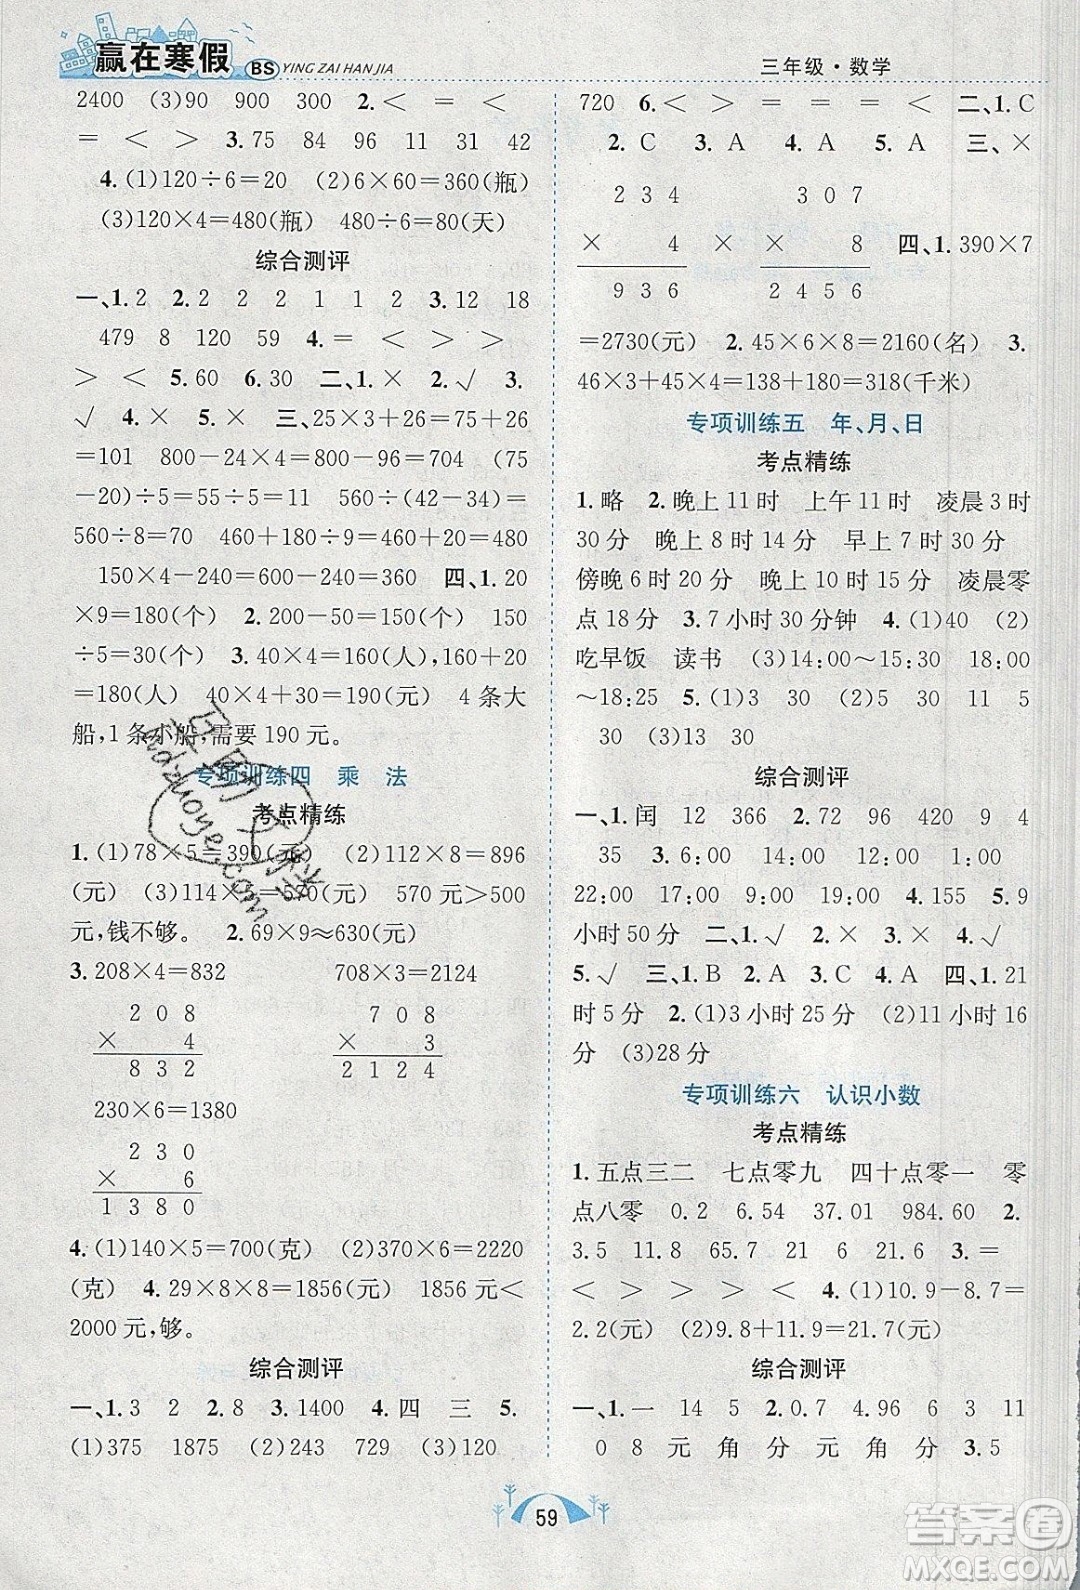 赢在寒假 BS YING ZAI HAN JIA
三年级·数学
2400 (3)90 900 300 2.< = <
= < > 3.75 84 16 11 31 42
4.(1)120÷6=20 (2)6×60=360(瓶)
(3)120×4=480(瓶) 480÷6=80(天)
综合测评
一、1.2 2.2 2 1 1 2 3.12 18
479 8 120 59 4.= < > >
> < 5.60 6.30 二、1.× 2.√ 3.
√ 4.× 5.× 三、25×3+26=75+26
=101 800-24×4=800-96=704 (75
-20)÷5=55÷5=11 560÷(2×4)=
560÷8=70 460-240÷6=460-40=420
150×4-240=600-240=360 四、1.20
×9=180(个) 2.200-50=150(个) 150
÷5=30(个) 3.40×4=160(人),160+20
=180(人) 40×4+30=190(元) 4条大
船,1条小船,需要190元。
专项训练四 乘 法
考点精练
1.(1)78×5=390(元) (2)112×8=896
(元) (3)114×5=570(元) 570元>500
元,钱不够。 2.69×9≈630(元)
3.208×4=832 708×3=2124
2 0 8 7 0 8
× 4 × 3
8 3 2 2 1 2 4
230×6=1380
2 3 0
× 6
1 3 8 0
4.(1)140×5=700(克) (2)370×6=2220
(克) 4.29×8×8=1856(元) 1856元<
2000元,够。
综合测评
一、1.3 2 2.8 3.1400 4.四 三 5.
(1)375 1875 (2)243 729 (3)120
720 6.< > = = < 二、1.C
2.C 3.A 4.A 5.A 三、×
2 3 4 3 0 7
× 4 × × 8 四、1.390×7
9 3 6 2 4 5 6
=2730(元) 2.45×6×8=2160(名) 3.
46×3+45×4=138+180=318(千米)
专项训练五 年、月、日
考点精练
1.略 2.晚上11时 上午11时 凌晨3时
30分 晚上8时14分 早上7时30分
傍晚6时20分 晚上10时15分 凌晨零
点18分 3.7小时30分钟 4.(1)40 (2)
吃早饭 读书 (3)14:00～15:30 18:00
～18:25 5.(1)3 30 (2)5 30 11 5
30 (3)13 30
综合测评
一、1.闰 12 366 2.72 96 420 9 4
35 3.6:00 14:00 12:00 0:00
22:00 17:00 9:00 4.155 5.9
小时50分 二、1.√ 2.× 3.× 4.√
5.√ 三、1.B 2.A 3.C 4.A 四、1.21
时5分 2.(1)3小时25分 (2)11小时16
分 (3)28分
专项训练六 认识小数
考点精练
1.五点三二 七点零九 四十点零一 零
点八零 0.2 6.54 37.01 984.60 2.
3.5 11.8 65.7 15.2 45 2.6 3.=
< > > > < 4.(1)10.9-8.7=
2.2(元) (2)9.9+11.8=21.7(元)
综合测评
一、1.一 14 5 2.0.7 4.96 6 3 11
0 8 元 角 分 元 角 分 3.5
59
答案圈
MXQE.COM